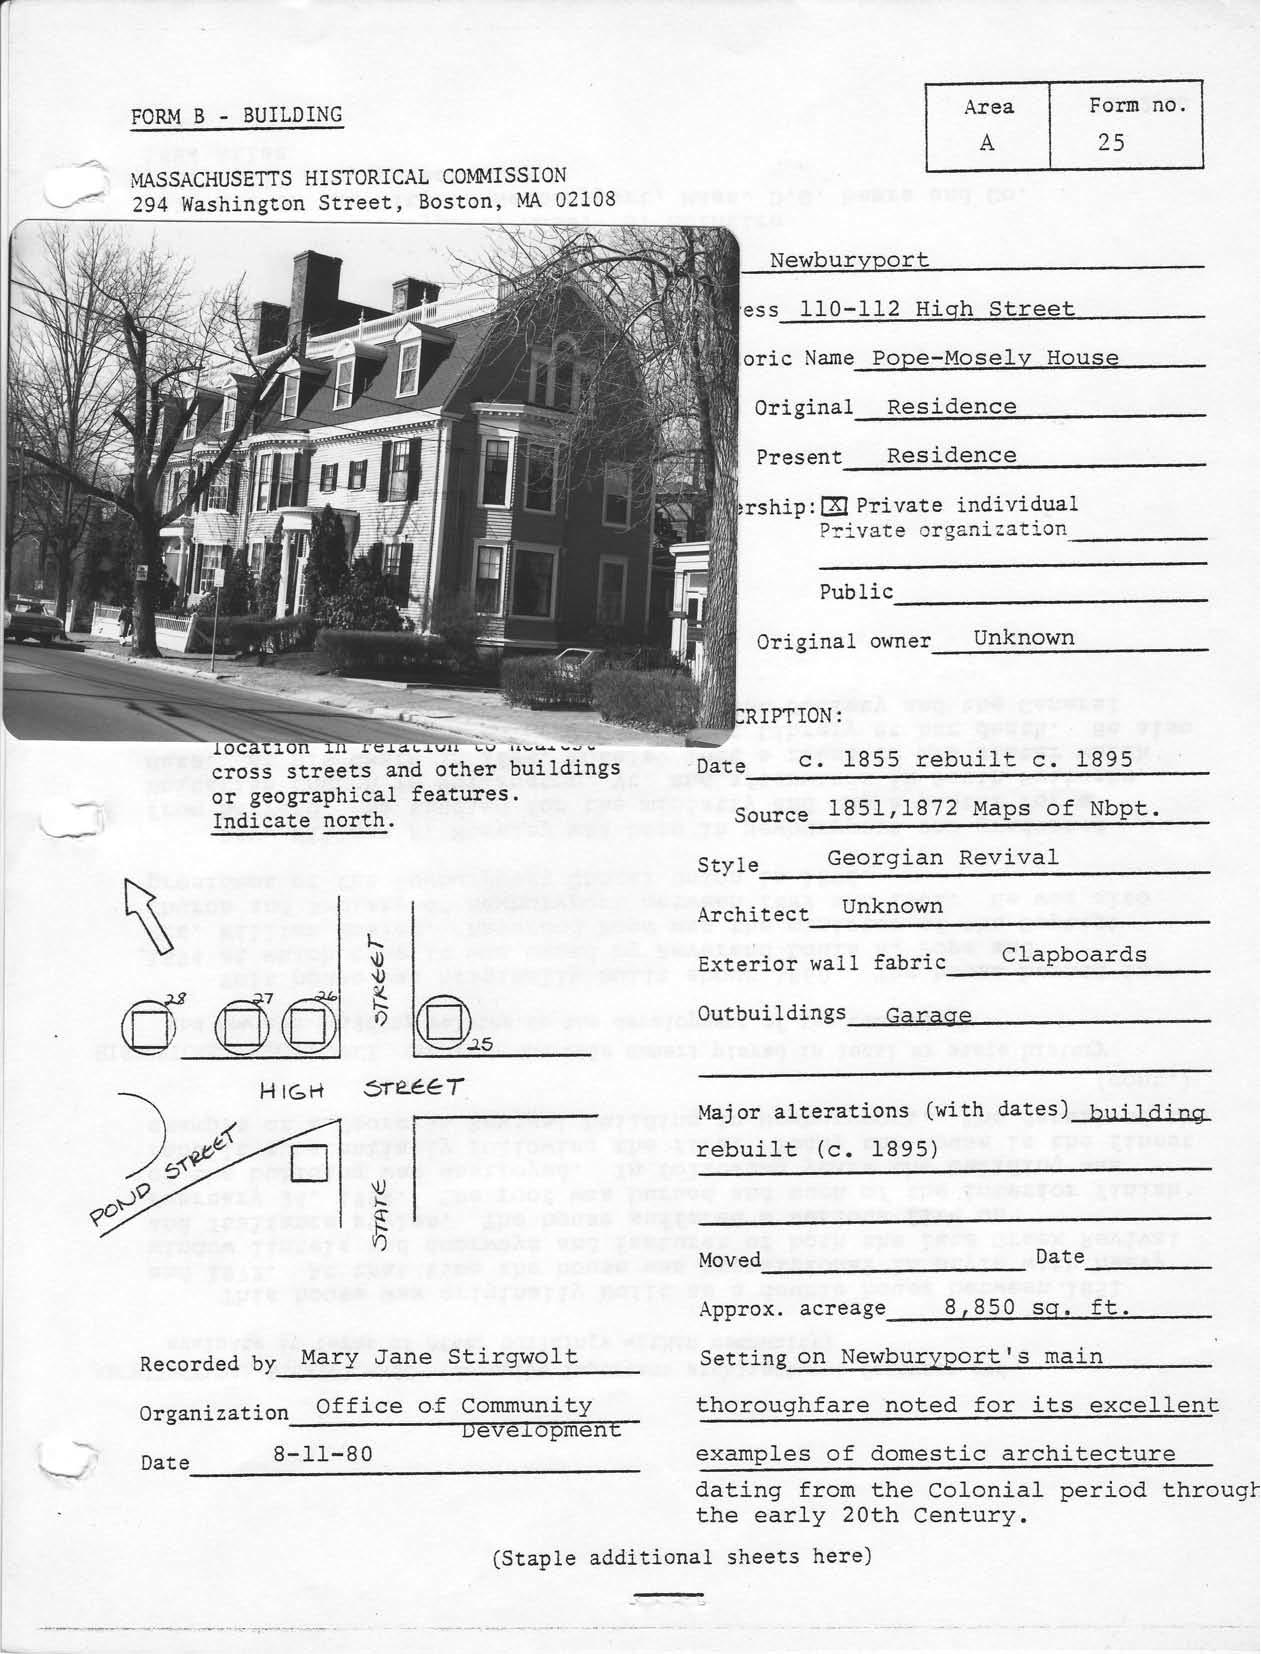 FORM B - BUILDING
Area
Form no.
A
25
MASSACHUSETTS HISTORICAL COMMISSION
294 Washington Street, Boston, MA 02108
Newburyport
ess 110-112 High Street
oric Name Pope-Mosely House
Original Residence
Present Residence
ership: [X] Private individual
Private organization
Public
Original owner Unknown
CRIPTION:
location in relation to nearest
cross streets and other buildings
or geographical features.
Indicate north.
Date c. 1855 rebuilt c. 1895
Source 1851,1872 Maps of Nbpt.
Style Georgian Revival
Architect Unknown
Exterior wall fabric Clapboards
Outbuildings Garage
Major alterations (with dates) building
rebuilt (c. 1895)
Moved Date
Approx. acreage 8,850 sq. ft.
Setting on Newburyport's main
thoroughfare noted for its excellent
examples of domestic architecture
dating from the Colonial period through
the early 20th Century.
28
27
26
STREET
25
HIGH STREET
POND STREET
STATE
Recorded by Mary Jane Stirgwolt
Organization Office of Community
Development
Date 8-11-80
(Staple additional sheets here)